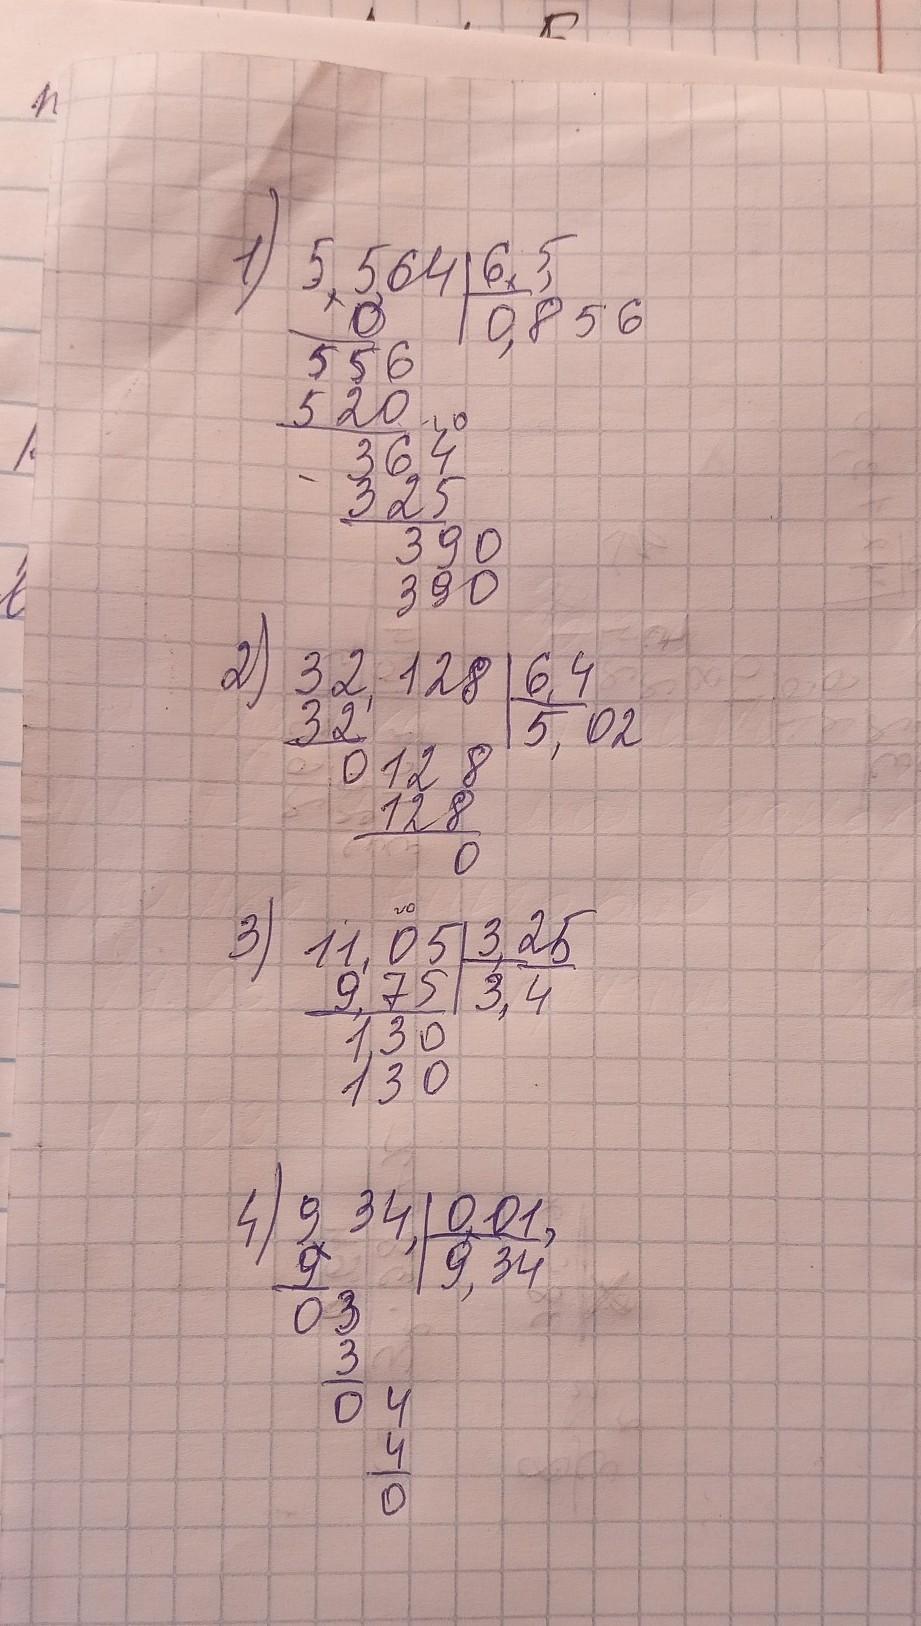 1) 5,564 | 6,5
0 | 0,856
556
520
364
325
390
390
2) 32,128 | 6,4
32 | 5,02
0128
128
0
3) 11,05 | 3,25
9,75 | 3,4
130
130
4) 9 34, | 0,01,
9 | 9,34
03
3
04
4
0